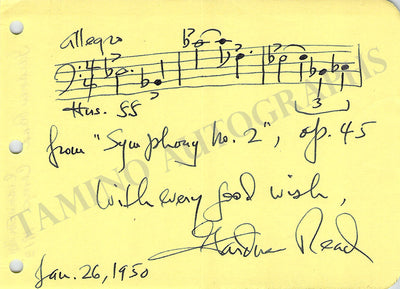 Allegro
4/4
Hns. ff
3
from "Symphony No. 2", op. 45
With every good wish,
Gardner Read
Jan. 26, 1950
TAMINO AUTOGRAPHS